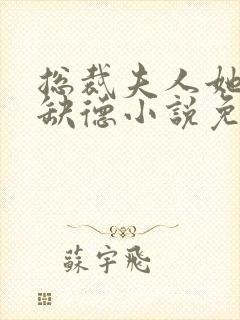 总裁夫人她
缺德小說免
蘇宇飛